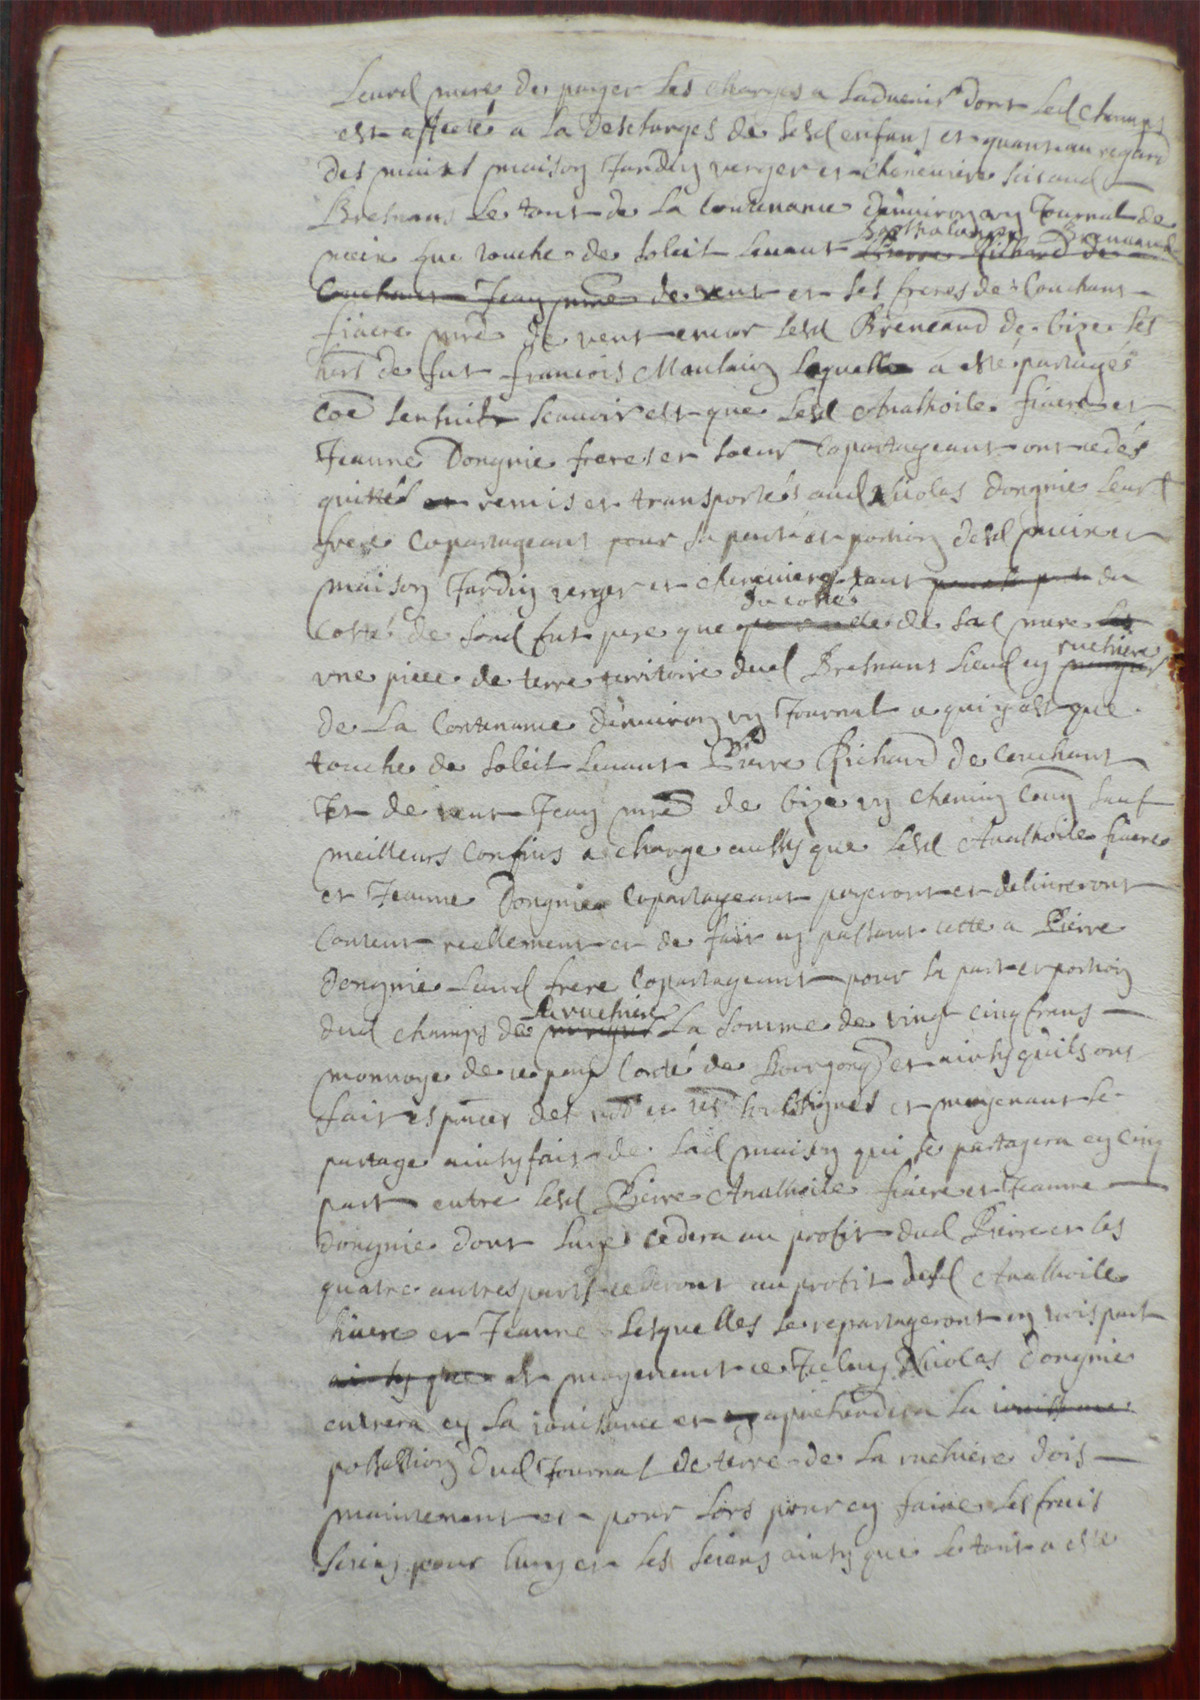 Leurd mere de payer les charges a ladvenir dont led champs
est affecté a la descharges de sesd enfans et quant au regard
des maix maison Jardin verger et cheneviere
Bresnans le tout de la contenance denviron un Journal de
meix que touche de soleil levant Barthelemy Breneaud Pierre Richard de
couchant Jean mre de vent et ses freres de couchant
fiacre mre de vent encor lesd Breneaud de bize les
hers de fut francois Moulain laquelle a esté partagés
coe sensuit scavoir est que lesd Anathoile fiacre et
Jeanne Dongnie freres et soeur copartageant ont cedés
quittés et remis et transportés aud Nicolas dongnie leur
frere copartageant pour sa part et portion desd meix et
maison Jardin verger et cheneviere tant du
costé de soud fut pere que du costé de de sad mere
une piece de terre territoire dud Bresnans lieud en ruchiere
de la contenance denviron un Journal a qui y ast que
touche de soleil levant Pierre Richard de couchant
et de vent Jean mre de bize un chemin comun sauf
meilleurs confins a charge aussy que lesd Anathoile fiacre
et Jeanne Dongnie copartageant payeront et delivreront
content reellement et de fait en passant cette a Pierre
dongnie leurd frere copartageant pour sa part et portion
dud champs de la ruchiere la somme de vingt cinq frans
monnoye de ce pays Conté de Bourgong et ainsy quils ont
fait es presences des et soubsignés et moyenant le
partage ainsy fait de lad maison qui se partagera en cinq
part entre lesd Pierre Anathoile fiacre et Jeanne
dongnie dont lune cedera au profit dud Pierre et les
quatre autres parts cederont au profit desd Anathoile
fiacre et Jeanne lesquelles se repartageront en trois part
ainsy que et moyenent ce Iceluy Nicolas dongnie
entrera en la jouissance et en aprehendera la jouissance
possession dud Journal de terre de la ruchiere dois
maintenant et pour lors pour en faire les fruis
seiens pour luny et les seiens ainsy que le tout a esté